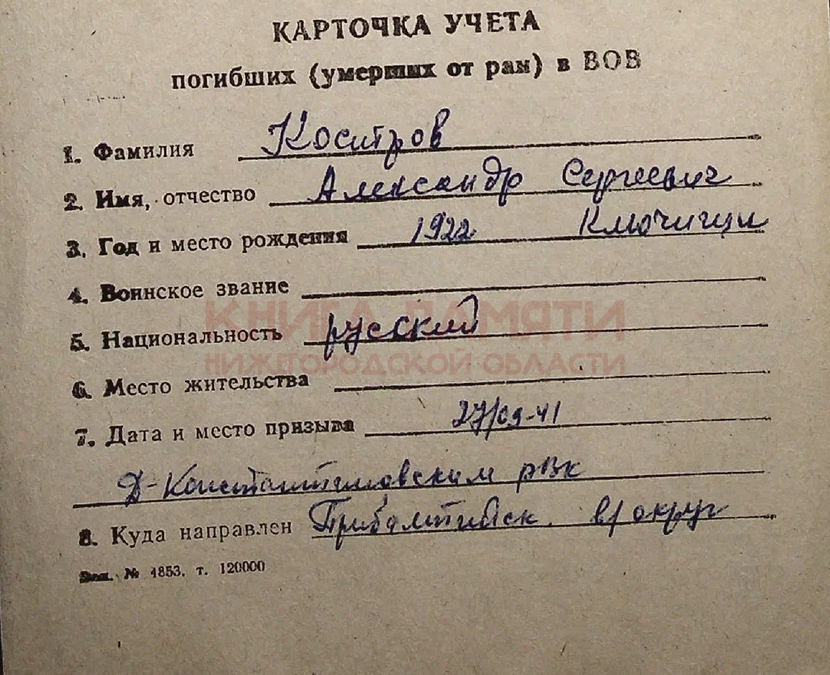 КАРТОЧКА УЧЕТА
погибших (умерших от ран) в ВОВ
1. Фамилия Коситров
2. Имя, отчество Александр Сергеевич
3. Год и место рождения 1922
4. Воинское звание
КНИГА ПАМЯТИ
5. Национальность русский
НИЖЕГОРОДСКОЙ ОБЛАСТИ
6. Место жительства
7. Дата и место призыва 27/09-41
Д-Константиновским рвк
8. Куда направлен Прибалтийск. в/округ
Зак. № 4853. т. 120000